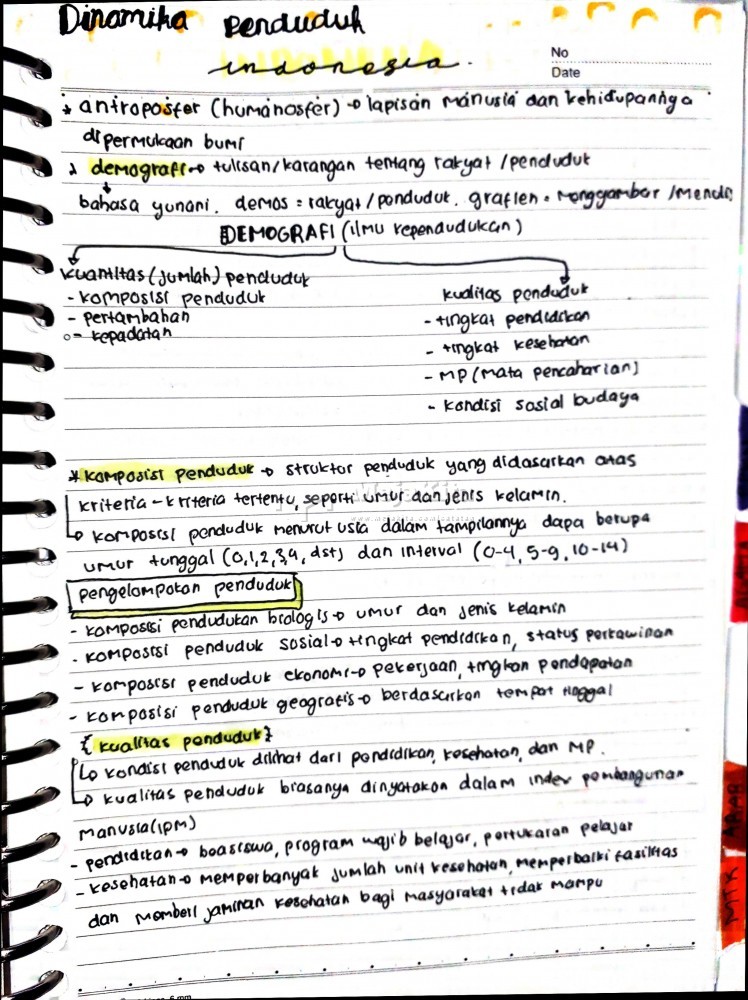 Dinamika Penduduk
indonesia.
No
Date
* antroposfer (humanosfer) → lapisan manusia dan kehidupannya
di permukaan bumi
demografi → tulisan/karangan tentang rakyat/penduduk
bahasa yunani. demos = rakyat/penduduk. grafien = menggambar/menulis
DEMOGRAFI (ilmu kependudukan)
kuantitas (jumlah) penduduk
- komposisi penduduk
- pertambahan
- kepadatan
kualitas penduduk
- tingkat pendidikan
- tingkat kesehatan
- MP (Mata pencaharian)
- kondisi sosial budaya
* komposisi penduduk → struktur penduduk yang didasarkan atas
kriteria - kriteria tertentu, seperti umur dan jenis kelamin.
↳ komposisi penduduk menurut usia dalam tampilannya dapa berupa
umur tunggal (0,1,2,3,4, dst) dan interval (0-4, 5-9, 10-14)
pengelompokan penduduk
- komposisi pendudukan biologis → umur dan jenis kelamin
- komposisi penduduk sosial → tingkat pendidikan, status perkawinan
- komposisi penduduk ekonomi → pekerjaan, tingkan pendapatan
- komposisi penduduk geografis → berdasarkan tempat tinggal
{ kualitas penduduk }
↳ kondisi penduduk dilihat dari pendidikan, kesehatan, dan MP.
↳ kualitas penduduk biasanya dinyatakan dalam index pembangunan
manusia (IPM)
- pendidikan → beasiswa, program wajib belajar, pertukaran pelajar
- kesehatan → memperbanyak jumlah unit kesehatan, memperbaiki fasilitas
dan memberi jaminan kesehatan bagi masyarakat tidak mampu
ARAB
MTK
6 mm